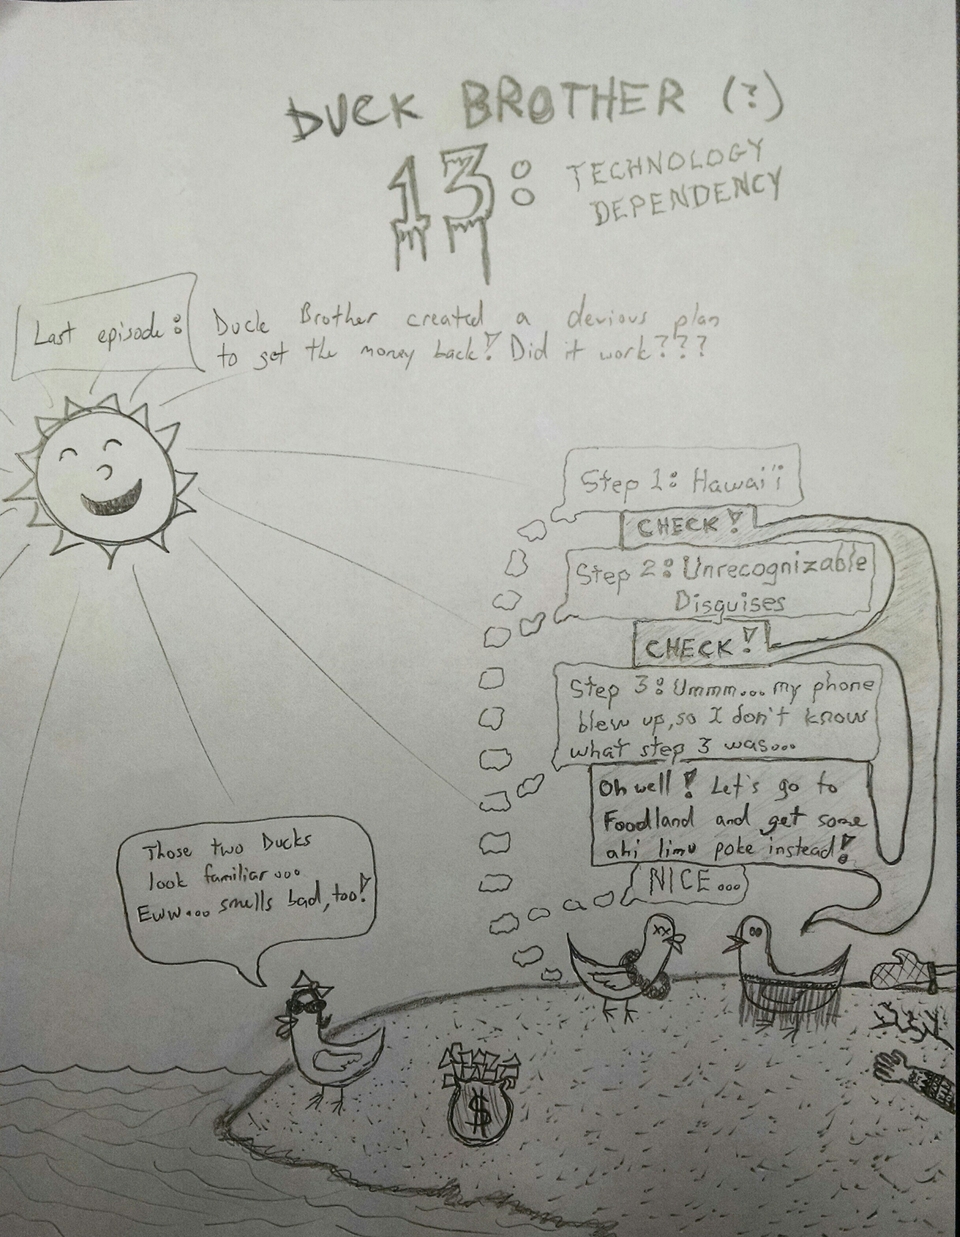 DUCK BROTHER (?)
13: TECHNOLOGY
DEPENDENCY
Last episode: Duck Brother created a devious plan
to get the money back! Did it work???
Step 1: Hawai'i
CHECK!
Step 2: Unrecognizable
Disguises
CHECK!
Step 3: Ummm... my phone
blew up, so I don't know
what step 3 was...
Oh well! Let's go to
Foodland and get some
ahi limu poke instead!
NICE...
Those two Ducks
look familiar...
Eww... smells bad, too!
$